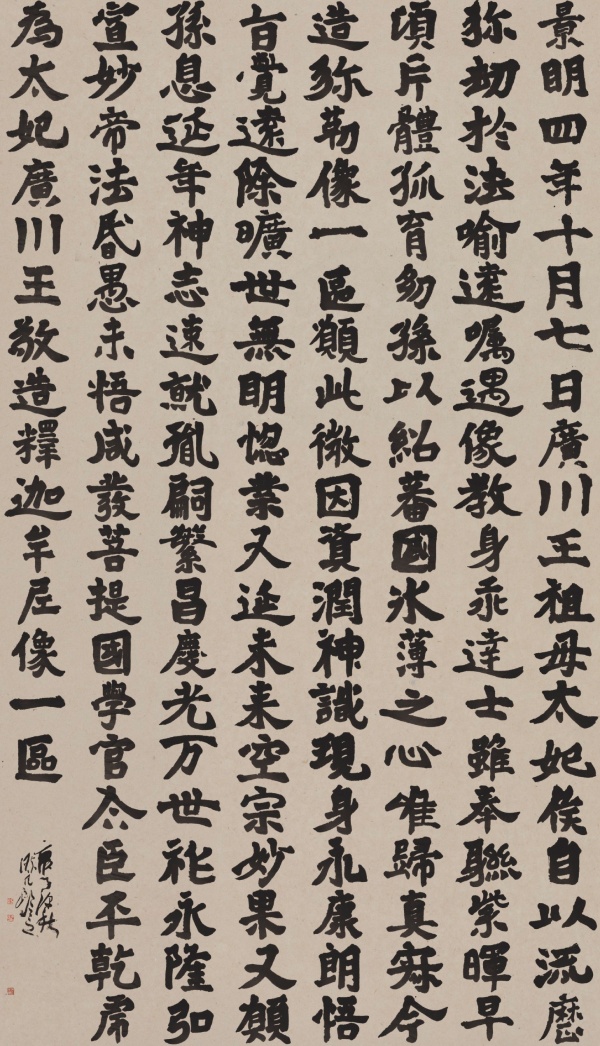 景明四年十月七日廣川王祖母太妃侯自以流歷
弥劫於法喻遠囑遇像教身乖達士雖奉聯紫暉早
頃片體孤育幼孫以紹蕃國氷薄之心唯歸真寂今
造弥勒像一區願此微因資潤神識現身永康朗悟
旨覺遠除曠世無明惚業又延未来空宗妙果又願
孫息延年神志速就胤嗣繁昌慶光万世祚永隆弘
宣妙帝法昏愚未悟咸發菩提國學官令臣平乾虎
為太妃廣川王敬造釋迦牟尼像一區
庚子